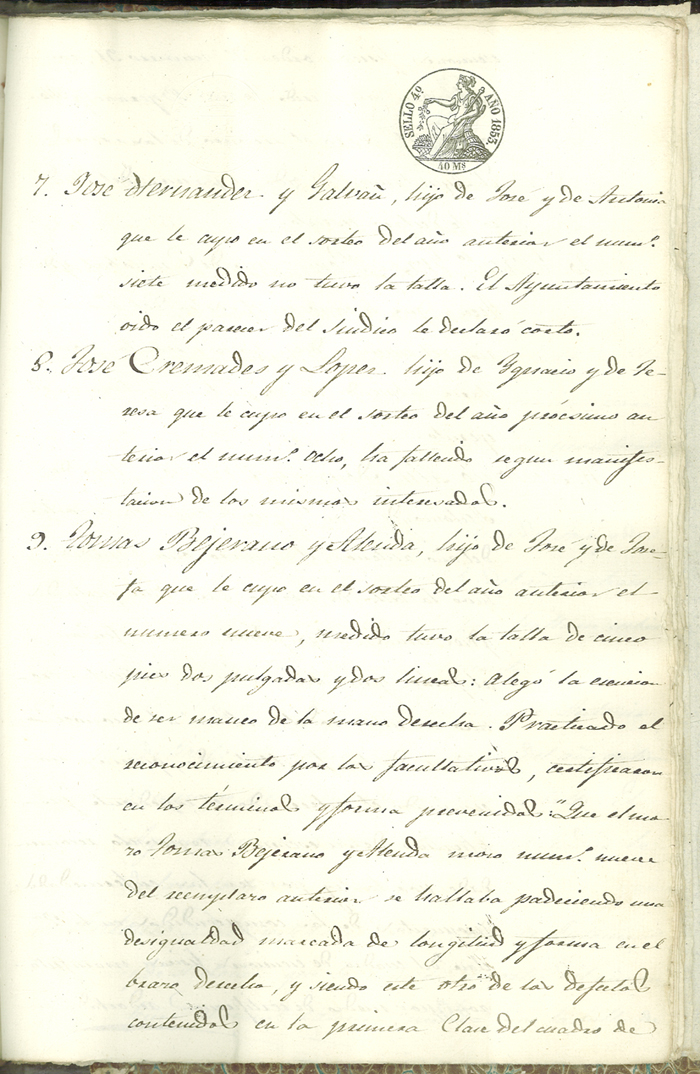 SELLO 4º AÑO 1853.
40 Ms
7. José Hernandez y Galvañ, hijo de José y de Antonia
que le cupo en el sorteo del año anterior el numº.
siete medido no tuvo la talla. El Ayuntamiento
oido el parecer del Sindico le declaró corto.
8. José Cremades y Lopez hijo de Ygnacio y de Te-
resa que le cupo en el sorteo del año procsimo an
terior el numº. ocho, ha fallecido segun manifes-
tacion de los mismos interesados.
9. Tomas Bejerano y Alenda, hijo de José y de Jose-
fa que le cupo en el sorteo del año anterior el
numero nueve, medido tuvo la talla de cinco
pies dos pulgadas y dos lineas: Alegó la esencion
de ser manco de la mano derecha. Practicado el
reconocimiento por los facultativos, certificaron
en los términos y forma prevenidos: "Que el mo
zo Tomas Bejerano y Alenda mozo numº. nueve
del reemplazo anterior se hallaba padeciendo una
desigualdad marcada de longitud y forma en el
brazo derecho, y siendo este otro de los defectos
contenidos en la primera Clase del cuadro de